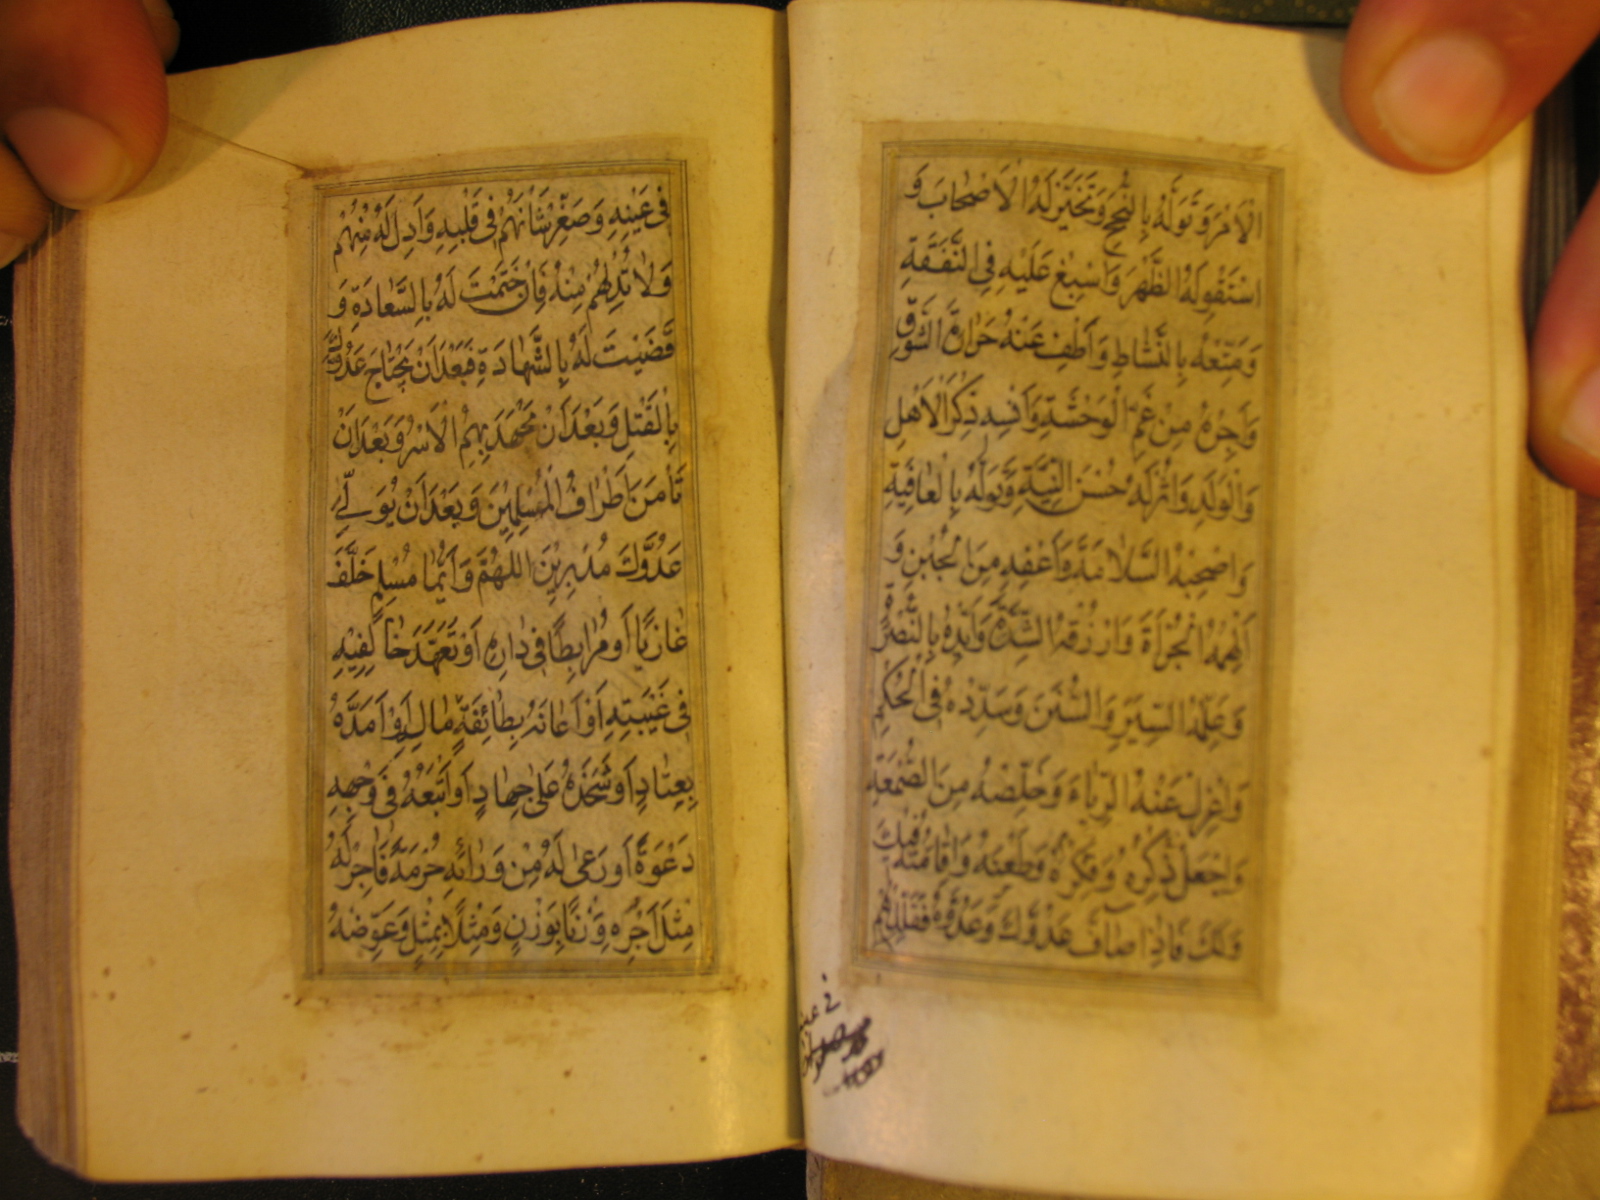 الْاَمْرَ وَ تَوَلَّهُ بِالنُّجْحِ وَ تَخَيَّرْ لَهُ الْاَصْحَابَ وَ
اسْتَقْوِ لَهُ الظَّهْرَ وَ اَسْبِغْ عَلَيْهِ فِي النَّفَقَةِ
وَ مَتِّعْهُ بِالنَّشَاطِ وَ اَطْفِ عَنْهُ حَرَارَةَ الشَّوْقِ
وَ اَجِرْهُ مِنْ غَمِّ الْوَحْشَةِ وَ اَنْسِهِ ذِكْرَ الْاَهْلِ
وَ الْوَلَدِ وَ اْثُرْ لَهُ حُسْنَ النِّيَّةِ وَ تَوَلَّهُ بِالْعَافِيَةِ
وَ اَصْحِبْهُ السَّلَامَةَ وَ اَعْفِهِ مِنَ الْجُبْنِ وَ
اَلْهِمْهُ الْجُرْاَةَ وَ ارْزُقْهُ الشِّدَّةَ وَ اَيِّدْهُ بِالنُّصْرَةِ
وَ عَلِّمْهُ السِّيَرَ وَ السُّنَنَ وَ سَدِّدْهُ فِي الْحُكْمِ
وَ اعْزِلْ عَنْهُ الرِّيَاءَ وَ خَلِّصْهُ مِنَ السُّمْعَةِ
وَ اجْعَلْ ذِكْرَهُ وَ فِكْرَهُ وَ ظَعْنَهُ وَ اِقَامَتَهُ فِيكَ
وَ لَكَ فَاِذَا صَافَّ عَدُوَّكَ وَ عَدُوَّهُ فَقَلِّلْهُمْ
في عينه
فِي عَيْنِهِ وَ صَغِّرْ شَانَهُمْ فِي قَلْبِهِ وَ اَدِلْ لَهُ مِنْهُمْ
وَ لَا تُدِلْهُمْ مِنْهُ فَاِنْ خَتَمْتَ لَهُ بِالسَّعَادَةِ وَ
قَضَيْتَ لَهُ بِالشَّهَادَةِ فَبَعْدَ اَنْ يَجْتَاحَ عَدُوَّكَ
بِالْقَتْلِ وَ بَعْدَ اَنْ يَجْهَدَ بِهِمُ الْاَسْرُ وَ بَعْدَ اَنْ
تَاْمَنَ اَطْرَافُ الْمُسْلِمِينَ وَ بَعْدَ اَنْ يُوَلِّيَ
عَدُوُّكَ مُدْبِرِينَ اللَّهُمَّ وَ اَيُّمَا مُسْلِمٍ خَلَفَ
غَازِيًا اَوْ مُرَابِطًا فِي دَارِهِ اَوْ تَعَهَّدَ خَالِفِيهِ
فِي غَيْبَتِهِ اَوْ اَعَانَهُ بِطَائِفَةٍ مِنْ مَالِهِ اَوْ اَمَدَّهُ
بِعِتَادٍ اَوْ شَحَذَهُ عَلَى جِهَادٍ اَوْ اَتْبَعَهُ فِي وَجْهِهِ
دَعْوَةً اَوْ رَعَى لَهُ مِنْ وَرَائِهِ حُرْمَةً فَاَجِرْ لَهُ
مِثْلَ اَجْرِهِ وَزْنًا بِوَزْنٍ وَ مِثْلًا بِمِثْلٍ وَ عَوِّضْهُ